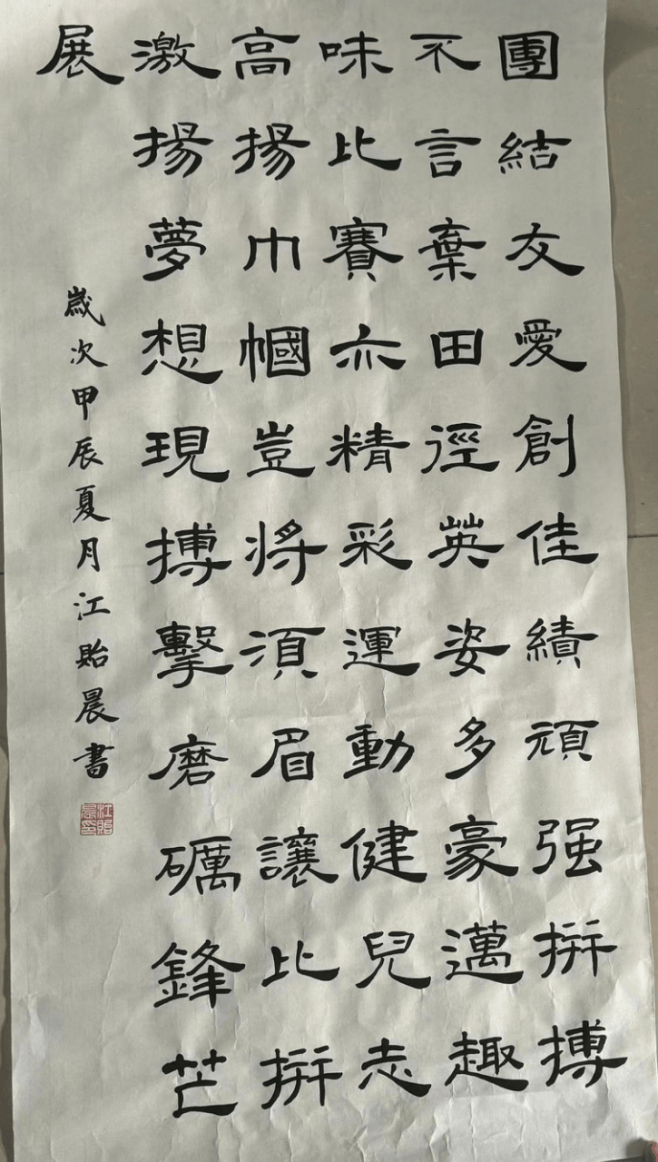 團結友愛創佳績頑强拼搏
不言棄田徑英姿多豪邁趣
味比賽亦精彩運動健兒志
高揚巾幗豈將須眉讓比拼
激揚夢想現搏擊磨礪鋒芒
展
歲次甲辰夏月江貽晨書
江貽晨印